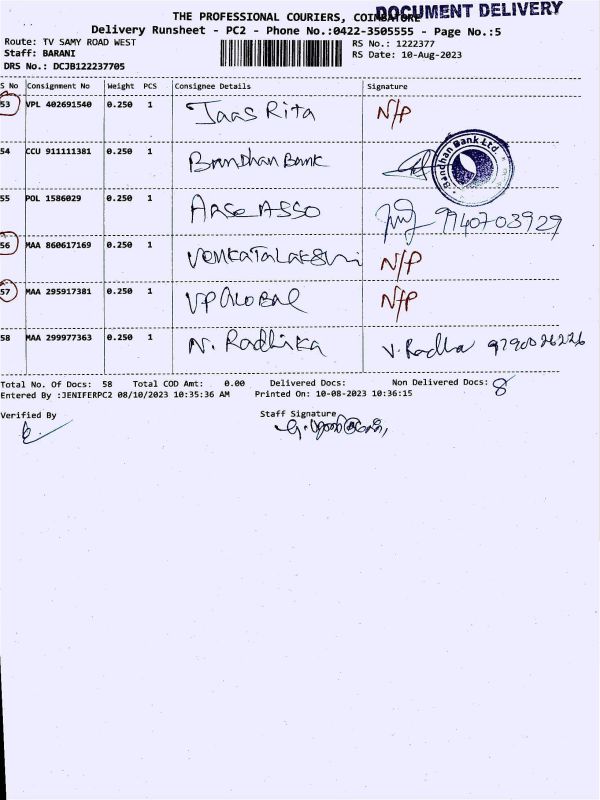 DOCUMENT DELIVERY
THE PROFESSIONAL COURIERS, COIMBATORE
Delivery Runsheet - PC2 - Phone No.:0422-3505555 - Page No.:5
Route: TV SAMY ROAD WEST RS No.: 1222377
Staff: BARANI RS Date: 10-Aug-2023
DRS No.: DCJB122237705
S No Consignment No Weight PCS Consignee Details Signature
53 VPL 402691540 0.250 1 Jaas Rita N/P
54 CCU 911111381 0.250 1 Brandhan Bank Bandhan Bank Ltd.
55 POL 1586029 0.250 1 Arse Asso 9940703929
56 MAA 860617169 0.250 1 Venkatalakshmi N/P
57 MAA 295917381 0.250 1 VP Global N/P
58 MAA 299977363 0.250 1 N. Radhika V. Radha 9790026226
Total No. Of Docs: 58 Total COD Amt: 0.00 Delivered Docs: Non Delivered Docs: 8
Entered By :JENIFERPC2 08/10/2023 10:35:36 AM Printed On: 10-08-2023 10:36:15
Verified By Staff Signature